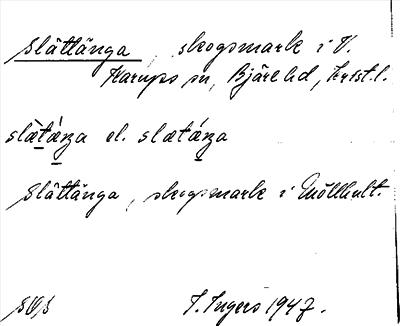 Slättänga, skogsmark i V.
Karups sn, Bjäre hd, Krist. l.
slæ̀táŋa el. slætáŋa
Slättänga, skogsmark i Möllhult.
I. Ingers 1947.